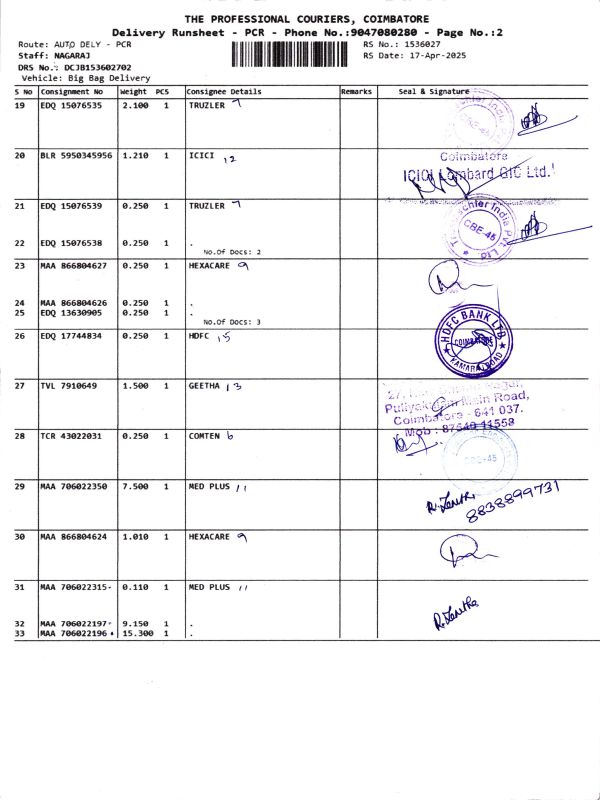 THE PROFESSIONAL COURIERS, COIMBATORE
Delivery Runsheet - PCR - Phone No.:9047080280 - Page No.:2
Route: AUTO DELY - PCR RS No.: 1536027
Staff: NAGARAJ RS Date: 17-Apr-2025
DRS No.: DCJB153602702
Vehicle: Big Bag Delivery
S No Consignment No Weight PCS Consignee Details Remarks Seal & Signature
19 EDQ 15076535 2.100 1 TRUZLER 7
20 BLR 5950345956 1.210 1 ICICI 12
Coimbatore
ICICI Lombard GIC Ltd.
21 EDQ 15076539 0.250 1 TRUZLER 7
CBE-45
22 EDQ 15076538 0.250 1 .
No.Of Docs: 2
23 MAA 866804627 0.250 1 HEXACARE 9
24 MAA 866804626 0.250 1 .
25 EDQ 13630905 0.250 1 .
No.Of Docs: 3
26 EDQ 17744834 0.250 1 HDFC 15
HDFC BANK LTD
COIMBATORE
KAMARAJ ROAD
27 TVL 7910649 1.500 1 GEETHA 13
27, Nagar,
Main Road,
Coimbatore - 641 037.
Mob : 87540 11558
28 TCR 43022031 0.250 1 COMTEN 6
CBE-45
29 MAA 706022350 7.500 1 MED PLUS 11
8838899731
30 MAA 866804624 1.010 1 HEXACARE 9
31 MAA 706022315 0.110 1 MED PLUS 11
32 MAA 706022197 9.150 1 .
33 MAA 706022196 15.300 1 .